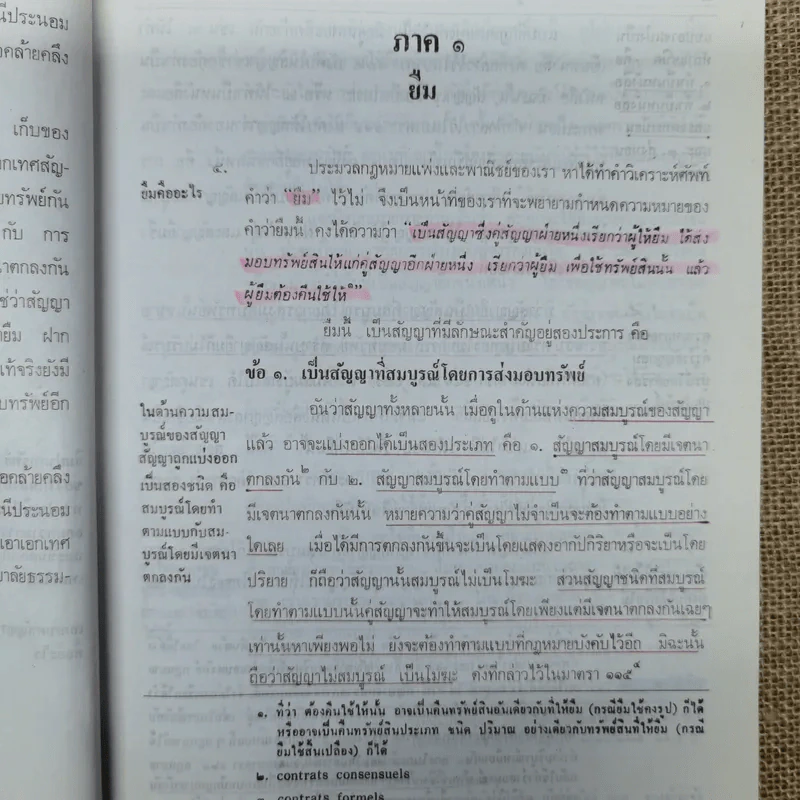 นีประนอม
อคล้ายคลึง
เก็บของ
อกเทศสัญ-
ยทรัพย์กัน
กับ การ
นาตกลงกัน
ช่ว่าสัญญา
ายืม ฝาก
แท้จริงยังมี
บทรัพย์อีก
อคล้ายคลึง
นีประนอม
เอาเอกเทศ
าลัยธรรม-
ภาค ๑
ยืม
๕. ประมวลกฎหมายแพ่งและพาณิชย์ของเรา หาได้ทำคำวิเคราะห์ศัพท์
ยืมคืออะไร
คำว่า "ยืม" ไว้ไม่ จึงเป็นหน้าที่ของเราที่จะพยายามกำหนดความหมายของ
คำว่ายืมนี้ คงได้ความว่า "เป็นสัญญาซึ่งคู่สัญญาฝ่ายหนึ่งเรียกว่าผู้ให้ยืม ได้ส่ง
มอบทรัพย์สินให้แก่คู่สัญญาอีกฝ่ายหนึ่ง เรียกว่าผู้ยืม เพื่อใช้ทรัพย์สินนั้น แล้ว
ผู้ยืมต้องคืนใช้ให้๑"
ยืมนี้ เป็นสัญญาที่มีลักษณะสำคัญอยู่สองประการ คือ
ข้อ ๑. เป็นสัญญาที่สมบูรณ์โดยการส่งมอบทรัพย์
ในด้านความสม-
บูรณ์ของสัญญา
สัญญาถูกแบ่งออก
เป็นสองชนิด คือ
สมบูรณ์โดยทำ
ตามแบบกับสม-
บูรณ์โดยมีเจตนา
ตกลงกัน
อันว่าสัญญาทั้งหลายนั้น เมื่อดูในด้านแห่งความสมบูรณ์ของสัญญา
แล้ว อาจจะแบ่งออกได้เป็นสองประเภท คือ ๑. สัญญาสมบูรณ์โดยมีเจตนา
ตกลงกัน๒ กับ ๒. สัญญาสมบูรณ์โดยทำตามแบบ๓ ที่ว่าสัญญาสมบูรณ์โดย
มีเจตนาตกลงกันนั้น หมายความว่าคู่สัญญาไม่จำเป็นจะต้องทำตามแบบอย่าง
ใดเลย เมื่อได้มีการตกลงกันขึ้นจะเป็นโดยแสดงอากัปกิริยาหรือจะเป็นโดย
ปริยาย ก็ถือว่าสัญญานั้นสมบูรณ์ไม่เป็นโมฆะ ส่วนสัญญาชนิดที่สมบูรณ์
โดยทำตามแบบนั้นคู่สัญญาจะทำให้สมบูรณ์โดยเพียงแต่มีเจตนาตกลงกันเฉยๆ
เท่านั้นหาเพียงพอไม่ ยังจะต้องทำตามแบบที่กฎหมายบังคับไว้อีก มิฉะนั้น
ถือว่าสัญญาไม่สมบูรณ์ เป็นโมฆะ ดังที่กล่าวไว้ในมาตรา ๑๑๕๔
๑. ที่ว่า ต้องคืนใช้ให้นั้น อาจเป็นคืนทรัพย์สินอันเดียวกับที่ให้ยืม (กรณียืมใช้คงรูป) ก็ได้
หรืออาจเป็นคืนทรัพย์สินประเภท ชนิด ปริมาณ อย่างเดียวกับทรัพย์สินที่ให้ยืม (กรณี
ยืมใช้สิ้นเปลือง) ก็ได้
๒. contrats consensuels
contrats formels